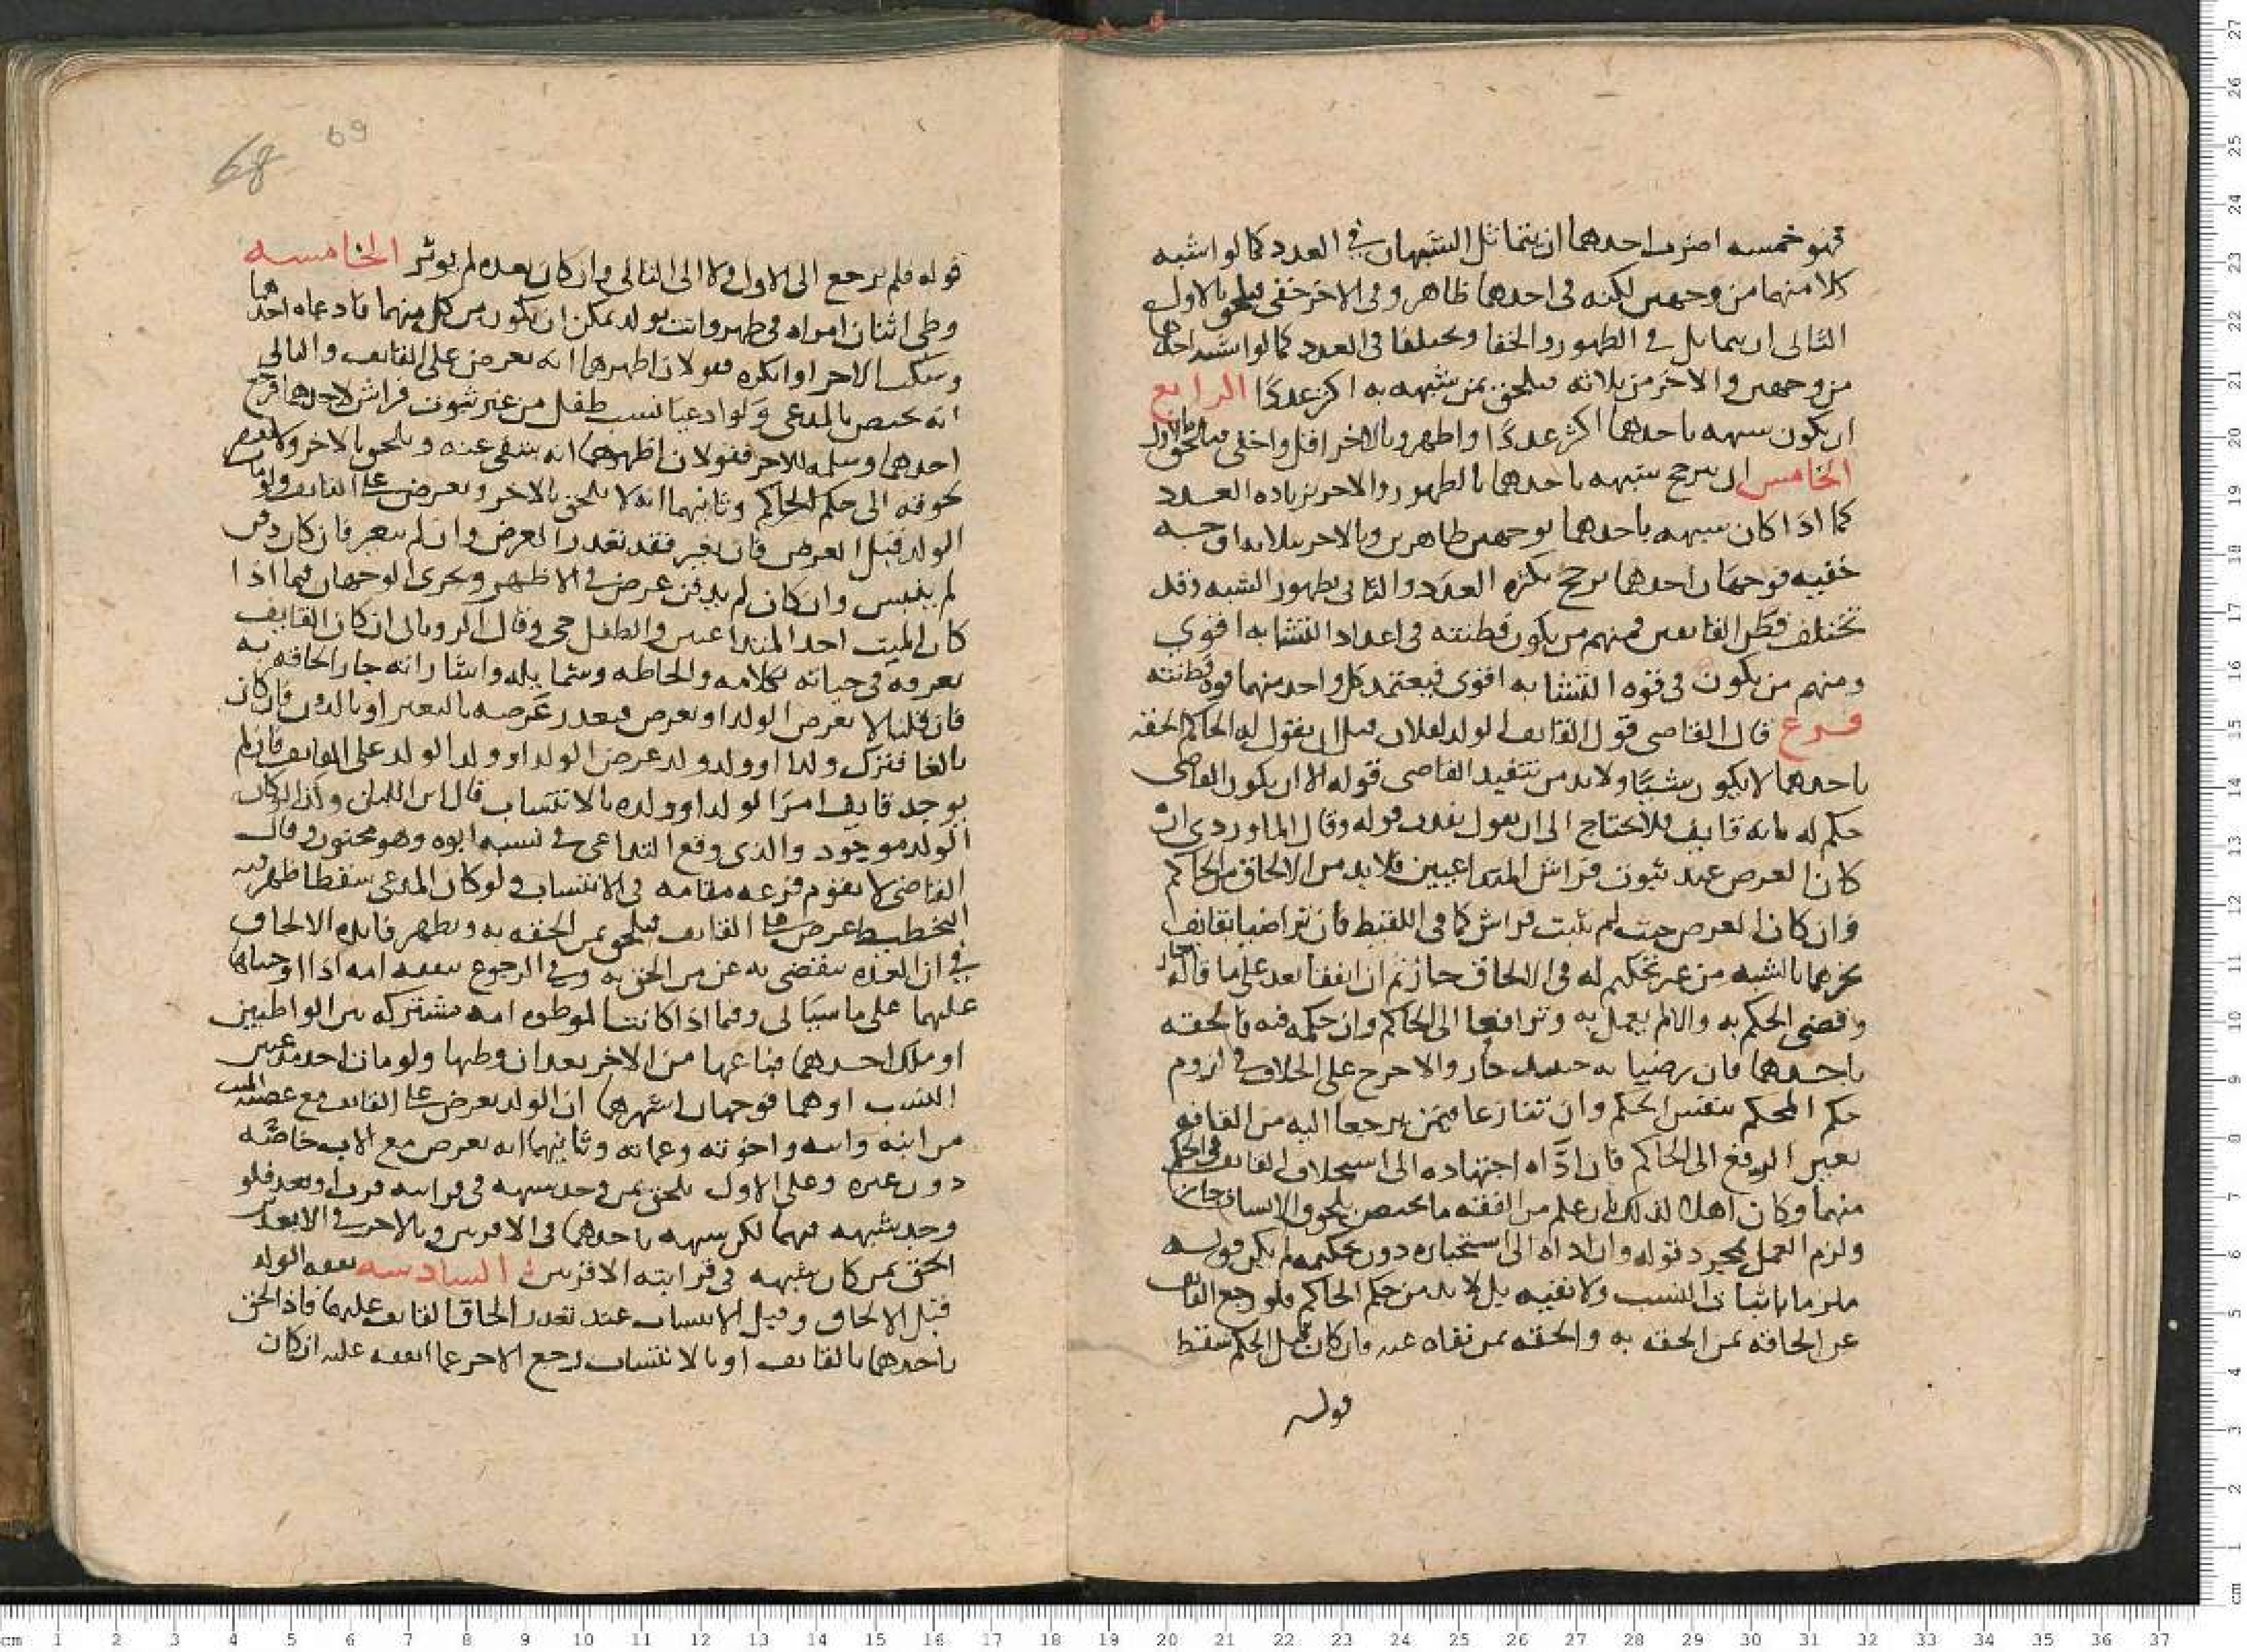 فهو خمسه اضرب احدهما ان يتماثل الشبهان في العدد كما لو اشبه
كلا منهما من وجهين لكنه في احدهما ظاهر وفي الاخر خفي فيلحق بالاول
الثاني ان يتماثل في الظهور والخفا ويختلفا في العدد كما لو اشبه احدهما
من وجهين والاخر من ثلاثه فيلحق بمن شبهه به اكثر عددًا الرابع
ان يكون شبهه باحدهما اكثر عددًا واظهر وبالاخر اقل واخفى فيلحق بالاول
الخامس ان يرجح شبهه باحدهما بالظهور والاخر بزياده العدد
كما اذا كان شبهه باحدهما بوجهين ظاهرين وبالاخر بثلاثه اوجه
خفيه فوجهان احدهما يرجح بكثره العدد والثاني بظهور الشبه وقد
تختلف فطن القايفين فمنهم من يكون فطنته في اعداد التشابه اقوى
ومنهم من يكون في قوه التشابه اقوى فيعتمد كل واحد منهما قوه فطنته
فرع قال القاضي قول القايف الولد لفلان قبل ان يقول له الحاكم الحقه
باحدهما لا يكون شيًا ولا بد من تنفيذ القاضي قوله الا ان يكون القاضي
حكم له بانه قايف فلا يحتاج الى ان يقول نفذت قوله وقال الماوردي ان
كان العرض عند ثبوت فراش المتداعيين فلا بد من الالحاق من الحاكم
وان كان العرض حيث لم يثبت فراش كما في اللقيط فان تراضيا بقايف
يخبرهما بالشبه من غير تحكيم له في الالحاق جاز ثم ان اتفقا بعد على ما قاله جاز
وقضى الحكم به والا لم يعمل به وترافعا الى الحاكم وان حكمه فيه فالحقه
باحدهما فان رضيا به حينيذ جاز والا خرج على الخلاف في لزوم
حكم المحكم بنفس الحكم وان تنازعا فيمن يرجعا اليه من القافه
تعين الرفع الى الحاكم فان ادَّاه اجتهاده الى استخلاف القايف في الحكم
منهما وكان اهلا لذلك بان علم من الفقه ما يختص بلحوق الانساب جاز
ولزم العمل بمجرد قوله وان اداه الى استخباره دون تحكيمه لم يكن قوله
ملزما باثبات النسب ولا نفيه بل لا بد من حكم الحاكم فلو رجع القايف
عن الحاقه بمن الحقه به والحقه بمن نفاه عنه فان كان قبل الحكم سقط
قوله
68 69
قوله فلم يرجع الى الاول ولا الى الثاني وان كان بعده لم يوثر الخامسه
وطي اثنان امراه في طهر واتت بولد يمكن ان يكون من كل منهما فادعاه احدهما
وسكت الاخر او انكره فقولان اظهرهما انه يعرض على القايف والثاني
انه يختص بالمدعي ولو ادعيا نسب طفل من غير ثبوت فراش لاحدهما فرجع
احدهما وسلمه للاخر فقولان اظهرهما انه ينتفي عنه ويلحق بالاخر ولا يفتقر
لحوقه الى حكم الحاكم وثانيهما انه لا يلحق بالاخر ويعرض على القايف ولو مات
الولد قبل العرض فان تغير فقد تعذر العرض وان لم يتغير فان كان دفن
لم ينبش وان كان لم يدفن عرض في الاظهر ويجري الوجهان فيما اذا
كان الميت احد المتداعيين والطفل حي وقال الروياني ان كان القايف
يعرفه في حياته بكلامه والحاظه وشمايله واشاراته جاز الحاقه به
فان قلنا لا يعرض الولد او يعرض فتعذر عرضه بالتغير او بالدفن فان كان
بالغا فترك ولدا او ولد ولد عرض الولد او ولد الولد على القايف فان لم
يوجد قايف امر الولد او ولده بالانتساب قال ابن اللبان وكذا لو كان
الولد موجود والذي وقع التداعي في نسبه ابوه وهو مجنون وقال
القاضي لا يقوم فرعه مقامه في الانتساب ولو كان المدعى سقطا ظهر فيه
التخطيط عرض على القايف فيلحق بمن الحقه به ويظهر فايده الالحاق
في ان العده تنقضي به عن من الحق به وفي الرجوع بنفقه امه اذا اوجبناها
عليهما على ما سياتي وفيما اذا كانت الموطوه امه مشتركه بين الواطيين
او ملك احدهما فباعها من الاخر بعد ان وطيها ولو مات احد مدعيي
النسب او هما فوجهان اشهرهما ان الولد يعرض على القايف مع عصبه الميت
من ابنه وابيه واخوته وعماته وثانيهما انه يعرض مع الاب خاصَّه
دون غيره وعلى الاول يلحق بمن وجد شبهه في قرابته قرب او بعد فلو
وجد شبهه فيهما لكن شبهه باحدهما في الاقربين وبالاخر في الابعدين
الحق بمن كان شبهه في قرابته الاقربين السادسه نفقه الولد
قبل الالحاق وقبل الانتساب عند تعذر الحاق القايف عليهما فاذا الحق
باحدهما بالقايف او بالانتساب رجع الاخر بما انفقه عليه ان كان